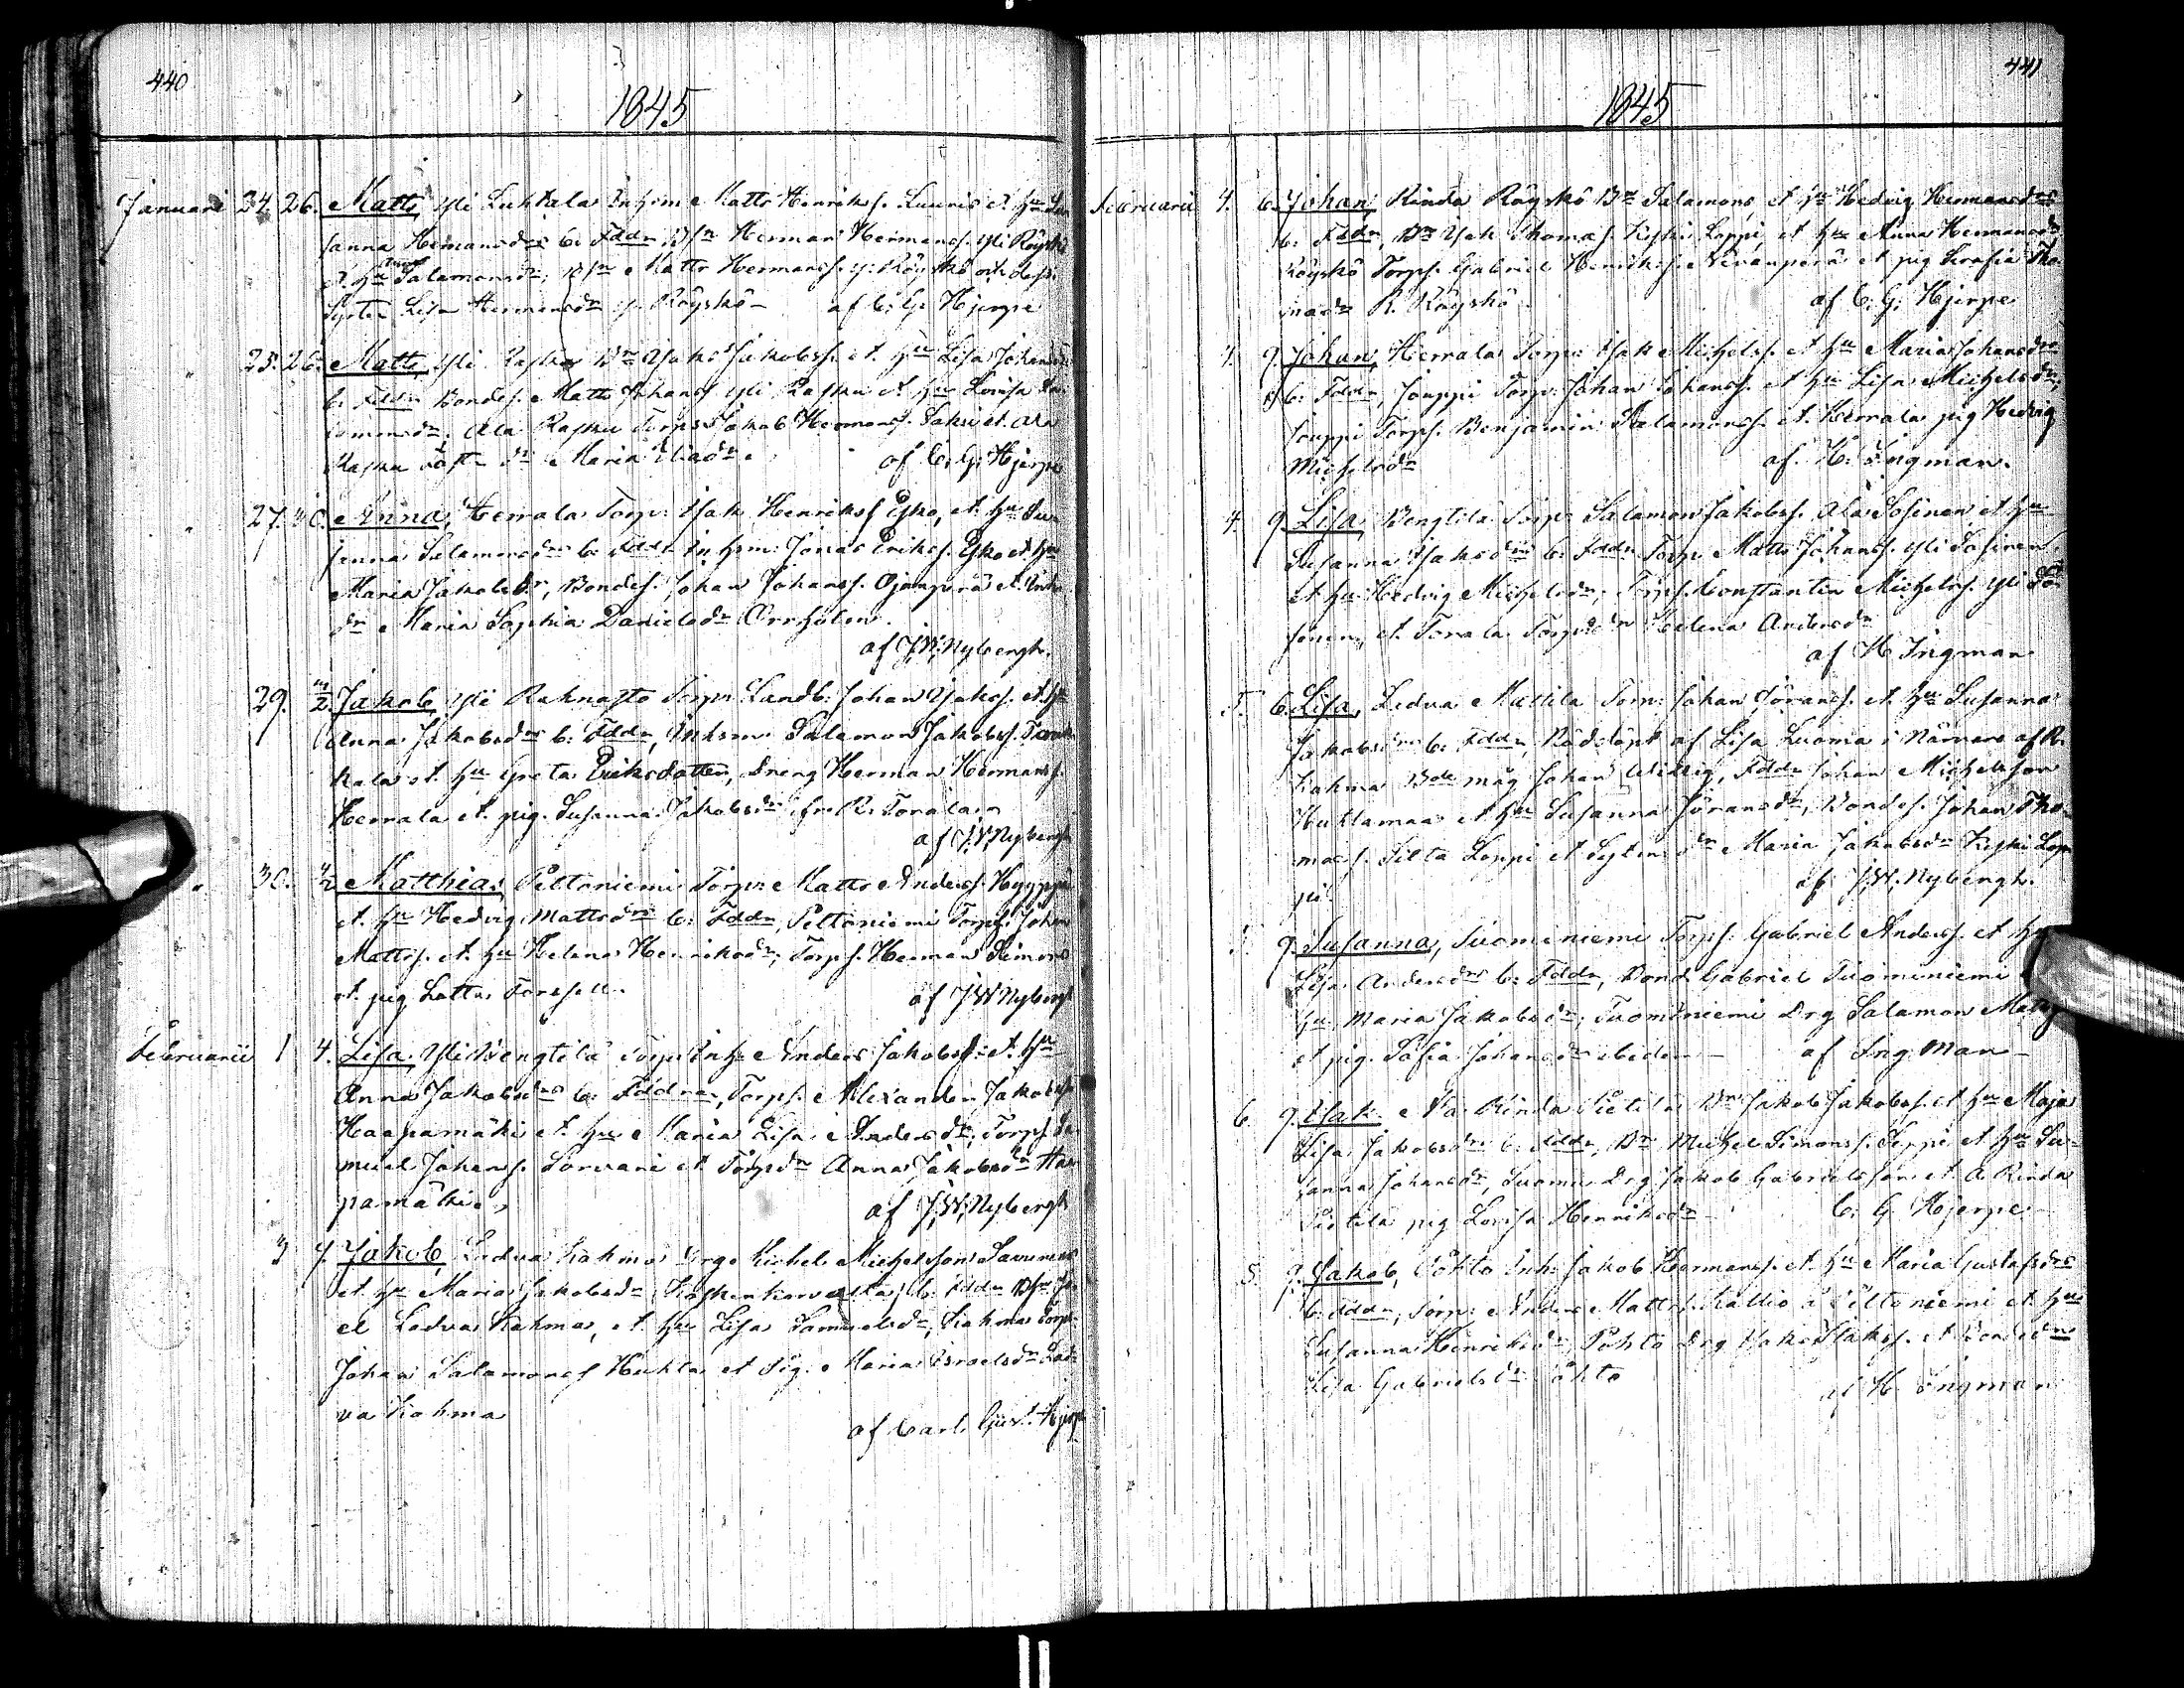 440
1845
Januari 24. 26. Matts, Yli Luhtala Inhsm Matts Henrikss. Luuris et hu Su
sanna Hermansdrs b: Fddr, Bsn Herman Hermanss. Yli Röyskö
et hu Anna Salamonsdr; Bsn Matts Hermanss. y. Röyskö och dess
Syster Lisa Hermansdr y. Röyskö - af C. G. Hjerpe
" 25. 26. Matts, Yli Rasku Bn Isak Jakobss. et hu Lisa Johansdrs
b. Fddr Bondes. Matts Johanss Yli Rasku et hu Lovisa Sa
lomonsdr; Ala Rasku Torps Jakob Hermans. Saksi et Ala
Rasku dr Maria Eliadr. af C. G. Hjerpe
" 27. 30. Anna, Herrala Torp: Isak Henrikss Esko, et hu Su
sanna Salamonsdrs b. Fddr Inhsm: Jonas Erikss. Esko et hu
Maria Jakobsdr, Bondes. Johan Johanss. Ojanperä et
dr Maria Sophia Danielsdr Ornhölm.
af J.W. Nybergh.
29. 1/2 Jakob, Yli Rahnasto Torpr Landb: Johan Isakss. et hu
Anna Jakobsdrs b: Fddr, Inhsm Salomon Jakobss.
kala et hu Greta Eriksdotter, Dreng Herman Hermanss.
Herrala et pig. Susanna Jakobsdr fr R. Torala.
af J.W. Nybergh
" 30. 4/2 Matthias, Peltoniemi Torpr: Matts Anderss. Hyyppä
et hu Hedvig Mattsdrs b: Fddr, Peltoniemi Torps: Johan
Mattss. et hu Helena Henriksdr, Torps. Herman Simons
et pig Lotta Forssell. af J.W Nybergh
Februarii 1 4. Lisa, Yli Bengtila Torp Inh: Anders Jakobss: et hu
Anna Jakobsdrs b: Fddrne, Torps. Alexander Jakobss
Haapamäki et hu Maria Lisa Andersdr; Torps Sa
muel Johanss. Sorvari et Torpsdr Anna Jakobsdr Haa
pamäki. af J.W. Nybergh
3 4. Jakob, Ladva Kahma Drg: Michel Michelsson Savunen
et hu Maria Jakobsdr Koskenkorva b. Fddr Bsn
el Ladva Kahma, et hu Lisa Samuelsdr, Kahma Torps
Johan Salamons Huhta et Pig. Maria Israelsdr Lad
va Kahma
af Carl Gust. Hjerpe
441
1845
Februarii 4. 6. Johan, Rinda Röyskö Bn Salamons, et hu Hedvig Hermansdrs
b: Fddr, Bn Isak Thomas. Keski Loppi, et hu Anna Hermansdr
Röyskö Torps. Gabriel Henrikss. Nevanperä et pig Serafia Tho
madr R. Röyskö af C. G. Hjerpe
4. 9. Johan, Herrala Torpr: Isak Michelss. et hu Maria Johansdrs
b: Fddr, Jouppi Torp: Johan Johanss. et hu Lisa Michelsdr;
Jouppi Torps. Benjamin Salamons. et Herrala pig Hedvig
Michelsdr af H. Ingman.
4. 9. Lisa, Bengtila Torpr: Salamon Jakobss. Ala Sosinen et hu
Susanna Isaksdrs b: Fddr Torp: Matts Johanss. Yli Sosinen
et hu Hedvig Michelsdr; Torps. Constantin Michelss. Yli So
sinen, et Torala Torpsdr Helena Andersdr
af H Ingman
5. 6. Lisa, Ledva Mattila Torp: Johan Jöranss. et hu Susanna
Jakobsdrs b: Fddr, Nöddöpt af Lisa Luoma i Närvaro af R.
Kahma Bde måg Johan, Fddr Johan Michelsson
Huhtamaa et hu Susanna Jöransdr, Bondes. Johan Tho
mas. Silta Loppi et Syster dr Maria Jakobsdr Keski Lop
pi. af J.W. Nybergh.
5 9. Susanna, Tuominiemi Torps: Gabriel Anderss. et hu
Lisa Andersdrs b: Fddr, Bond. Gabriel Tuominiemi
hu Maria Jakobsdr, Tuominiemi Drg Salamon Matts
et pig. Sofia Johansdr ibidem - af Ingman -
6 9. Isak, Ala Rinda Pietila Bn Jakob Jakobss. et hu Maja
Lisa Jakobsdrs b: Fddr, Bn Michel Simons. Seppi et hu Su
sanna Johansdr, Luoma Drg Jakob Gabrielsson et A. Rinda
Pietila pig Lovisa Henriksdr - C. G Hjerpe
5. 9. Jakob, Pohto Inh: Jakob Hermanss. et hu Maria Gustafsdrs
b. Fddr, Torp: Anders Mattss. Kallio a Peltoniemi et hu
Susanna Henriksdr, Pohto Drg Isak Isakss. et Bondedr
Lisa Gabrielsdr Pohto af H. Ingman